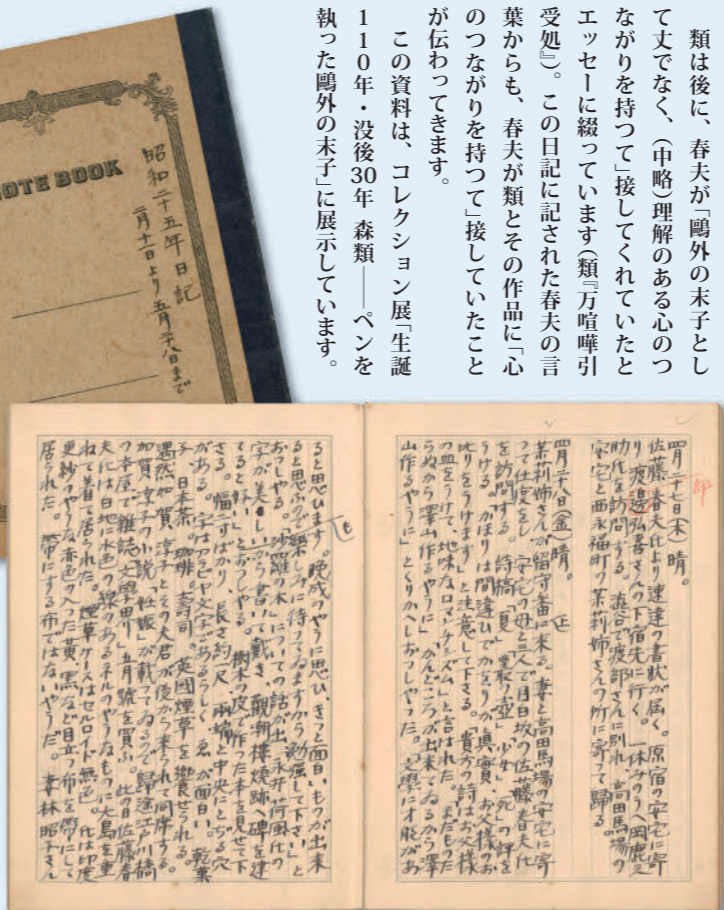 類は後に、春夫が「鷗外の末子とし
て丈でなく、（中略）理解のある心のつ
ながりを持つて」接してくれていたと
エッセーに綴っています（類『万喧嘩引
受処』）。この日記に記された春夫の言
葉からも、春夫が類とその作品に「心
のつながりを持つて」接していたこと
が伝わってきます。
この資料は、コレクション展「生誕
110年・没後30年 森類――ペンを
執った鷗外の末子」に展示しています。
NOTE BOOK
昭和二十五年日記
二月十一日より五月十八日まで
四月二十七日(木)晴。
佐藤春夫氏より速達の書状が届く。原宿の安宅に寄
り渡邊弘喜さんの下宿先に行く。一休みのうへ岡鹿之
助氏を訪問する。澁谷で渡部さんに別れ、高田馬場の
安宅と西永福町の茉莉姉さんの所に寄って歸る。
部
四月二十八日(金)晴。
茉莉姉さんが留守番に来る。妻と高田馬場の安宅に寄
って仕度をし安宅の母と三人で目白坂の佐藤春夫氏
を訪問する。詩稿「夏」「菫の空」「少女」「死」の評を
うける。かほりは間違ひでかをりが眞實、お父様のお
叱りをうけますと注意して下さる。貴方の詩はお父様
の血をうけて、地味なロマンチシズムと言はれた。またものた
らぬから澤山作るやうに、かんどころが出来てゐるから澤
山作るやうに」とくりかへしおっしゃった。「文學に才能があ
ると思ひます。晩成のやうに思ひ、きっと面白いものが出来
ると思ふので樂しみに待ってゐますから勉強して下さい」と
おっしゃる。「沙羅の木」についての話が出、永井荷風氏の
字が美しいから書いて戴き、觀潮樓燒跡へ碑を建
てると好いとおっしゃる。樹木の皮で作った本を見せて下
さる。幅二寸ばかり、長さ約一尺、兩端と中央にとぢる穴
がある。字はアラビヤ文字であるらしく、ゑが面白い。乾菓
子、日本茶、珈琲、壽司。英國煙草を饗せられる。
偶然加賀淳子とその夫君が後から来られて同席する。
加賀淳子の小説「妊娠」が載ってゐるので歸途江戸川橋
の本屋で雜誌「文學界」五月號を買ふ。此の日佐藤春
夫氏は白地に水色の線のあるネルのやうなものに大島を重
ねて着て居られた。煙草ケースはセルロイド無色。氏は印度
更紗のやうな赤色の入った黄、黒など目立つ布を帶にして
居られた。帶にする布ではないやうだ。妻林昭子さん